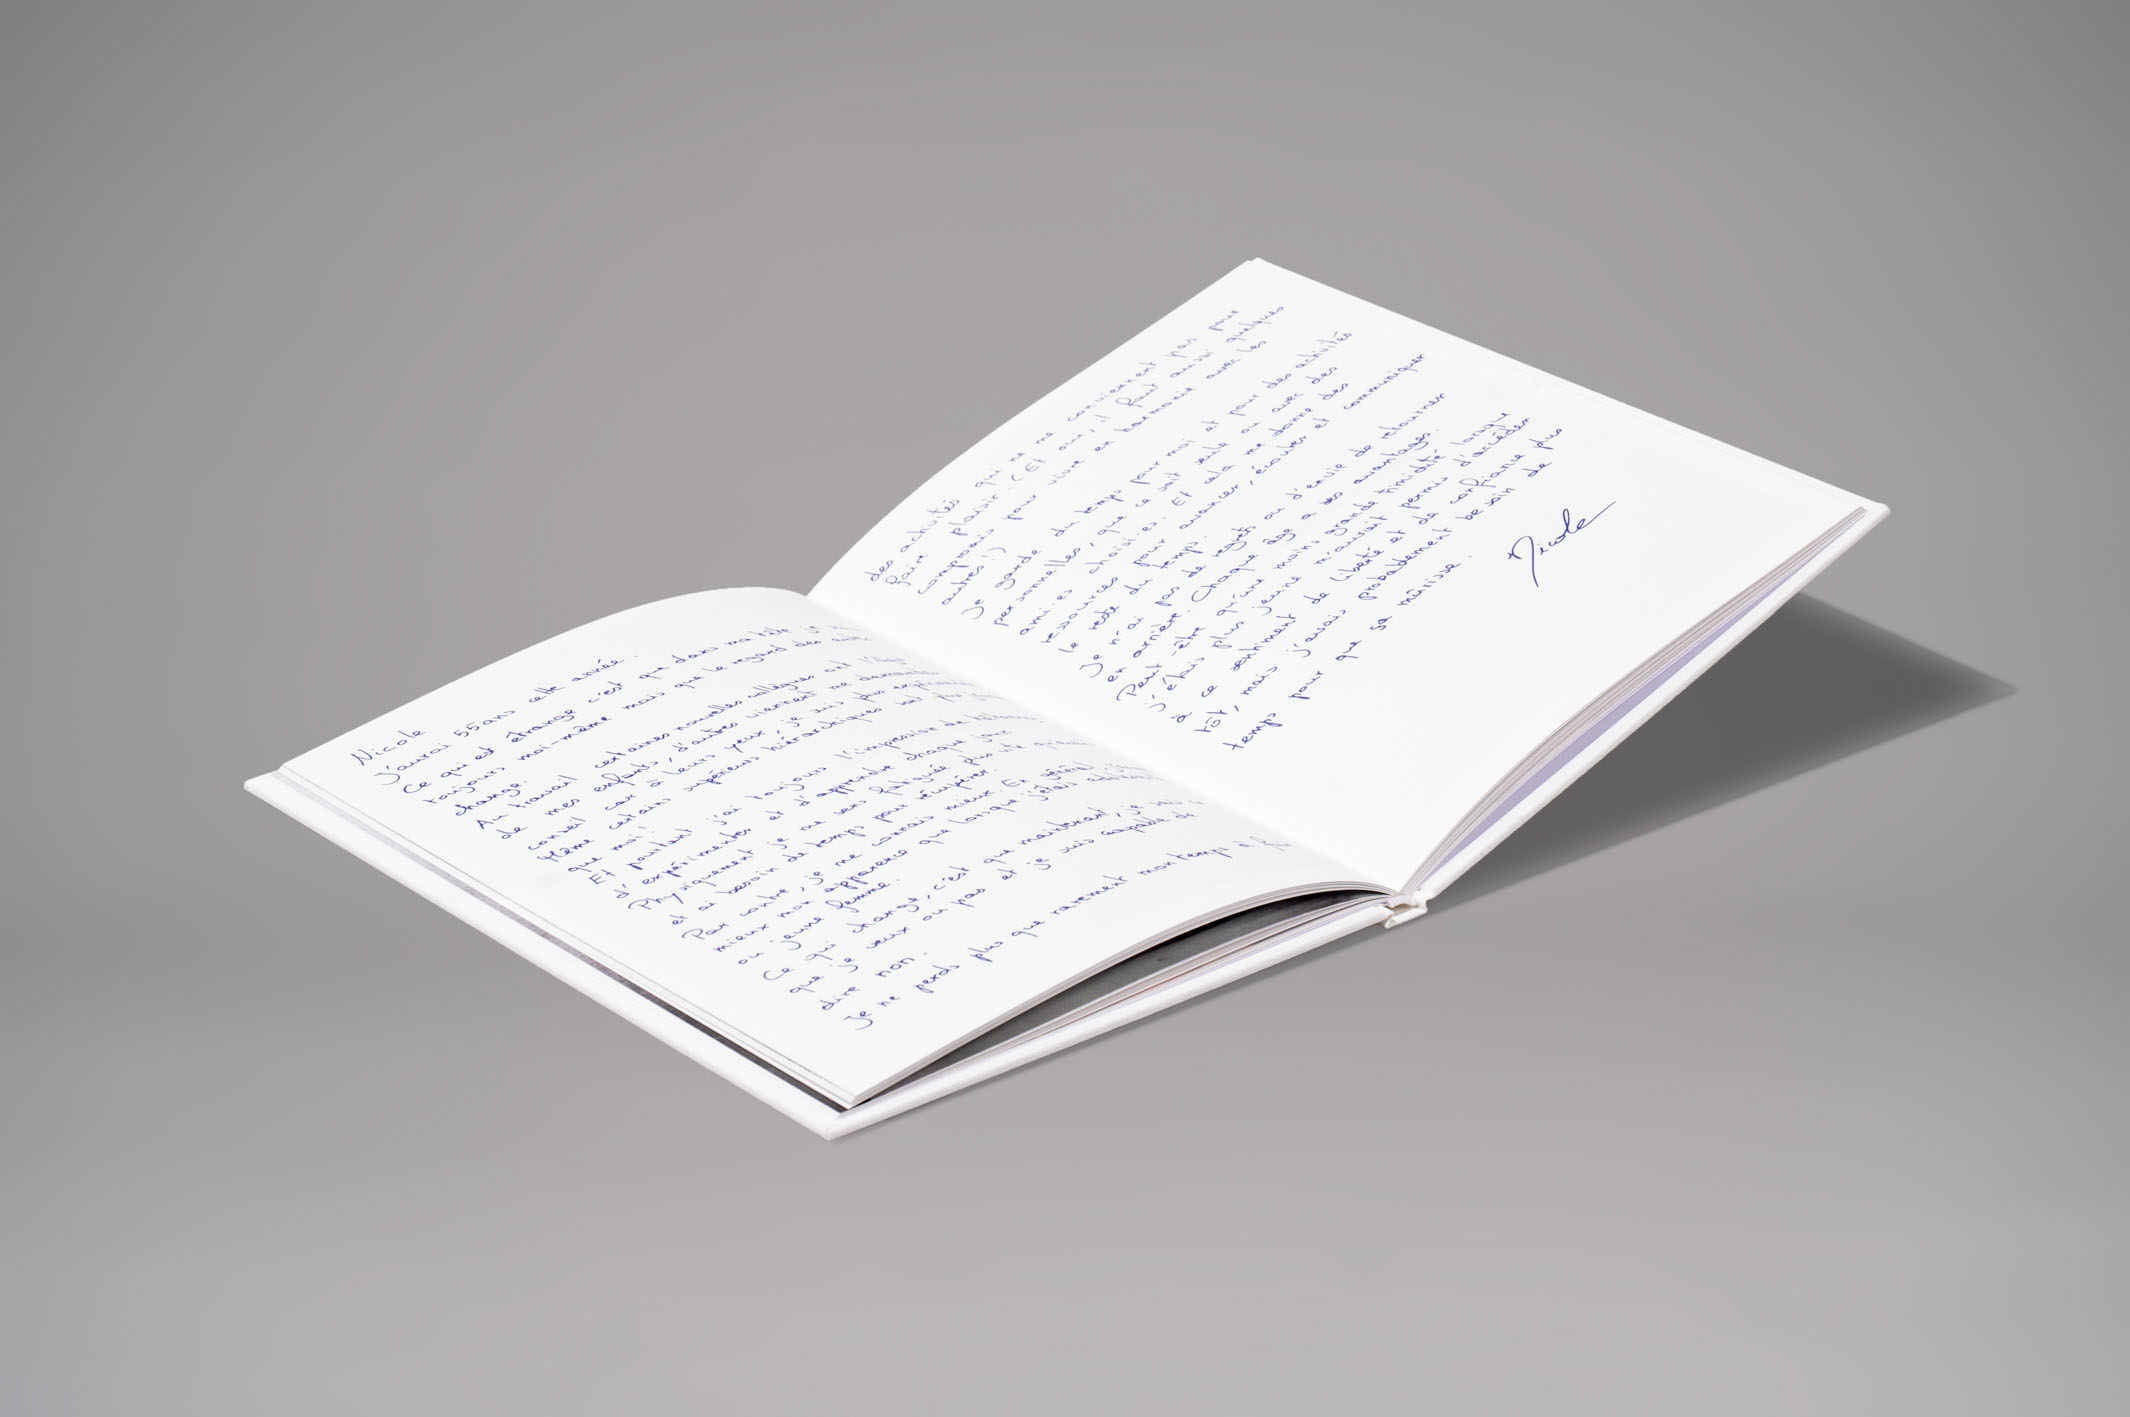 Nicole
J'aurai 55 ans cette année.
Ce qui est étrange c'est que dans ma tête je suis
toujours moi-même mais que le regard des autres
change.
Au travail certaines nouvelles collègues ont l'âge
de mes enfants, d'autres viennent me demander
conseil car à leurs yeux, je suis plus expérimentée
Même certains supérieurs hiérarchiques sont plus
que moi !
Et pourtant j'ai toujours l'impression de
d'expérimenter et d'apprendre chaque jour
Physiquement je me sens fatiguée plus vite qu'avant
et ai besoin de temps pour récupérer.
Par contre, je me connais mieux. En général, j'assume
mieux mon apparence que lorsque j'étais
ou jeune femme.
Ce qui change, c'est que maintenant, je sais ce
que je veux ou pas et je suis capable de
dire non.
Je ne perds plus que rarement mon temps à faire
des activités qui ne me conviennent pas pour
faire plaisir. (Et oui, il faut aussi quelques
compromis pour vivre en harmonie avec les
autres !)
Je garde du temps pour moi et pour des activités
personnelles, que ce soit seule ou avec des
ami·es choisi·es. Et cela me donne des
ressources pour avancer, écouter et communiquer
le reste du temps.
Je n'ai pas de regrets ou d'envie de retourner
en arrière. Chaque âge a ses avantages.
Peut-être qu'une moins grande timidité lorsque
j'étais plus jeune m'aurait permis d'accéder
à ce sentiment de liberté et de confiance plus
tôt, mais j'avais probablement besoin de
temps pour que ça mûrisse.
Nicole